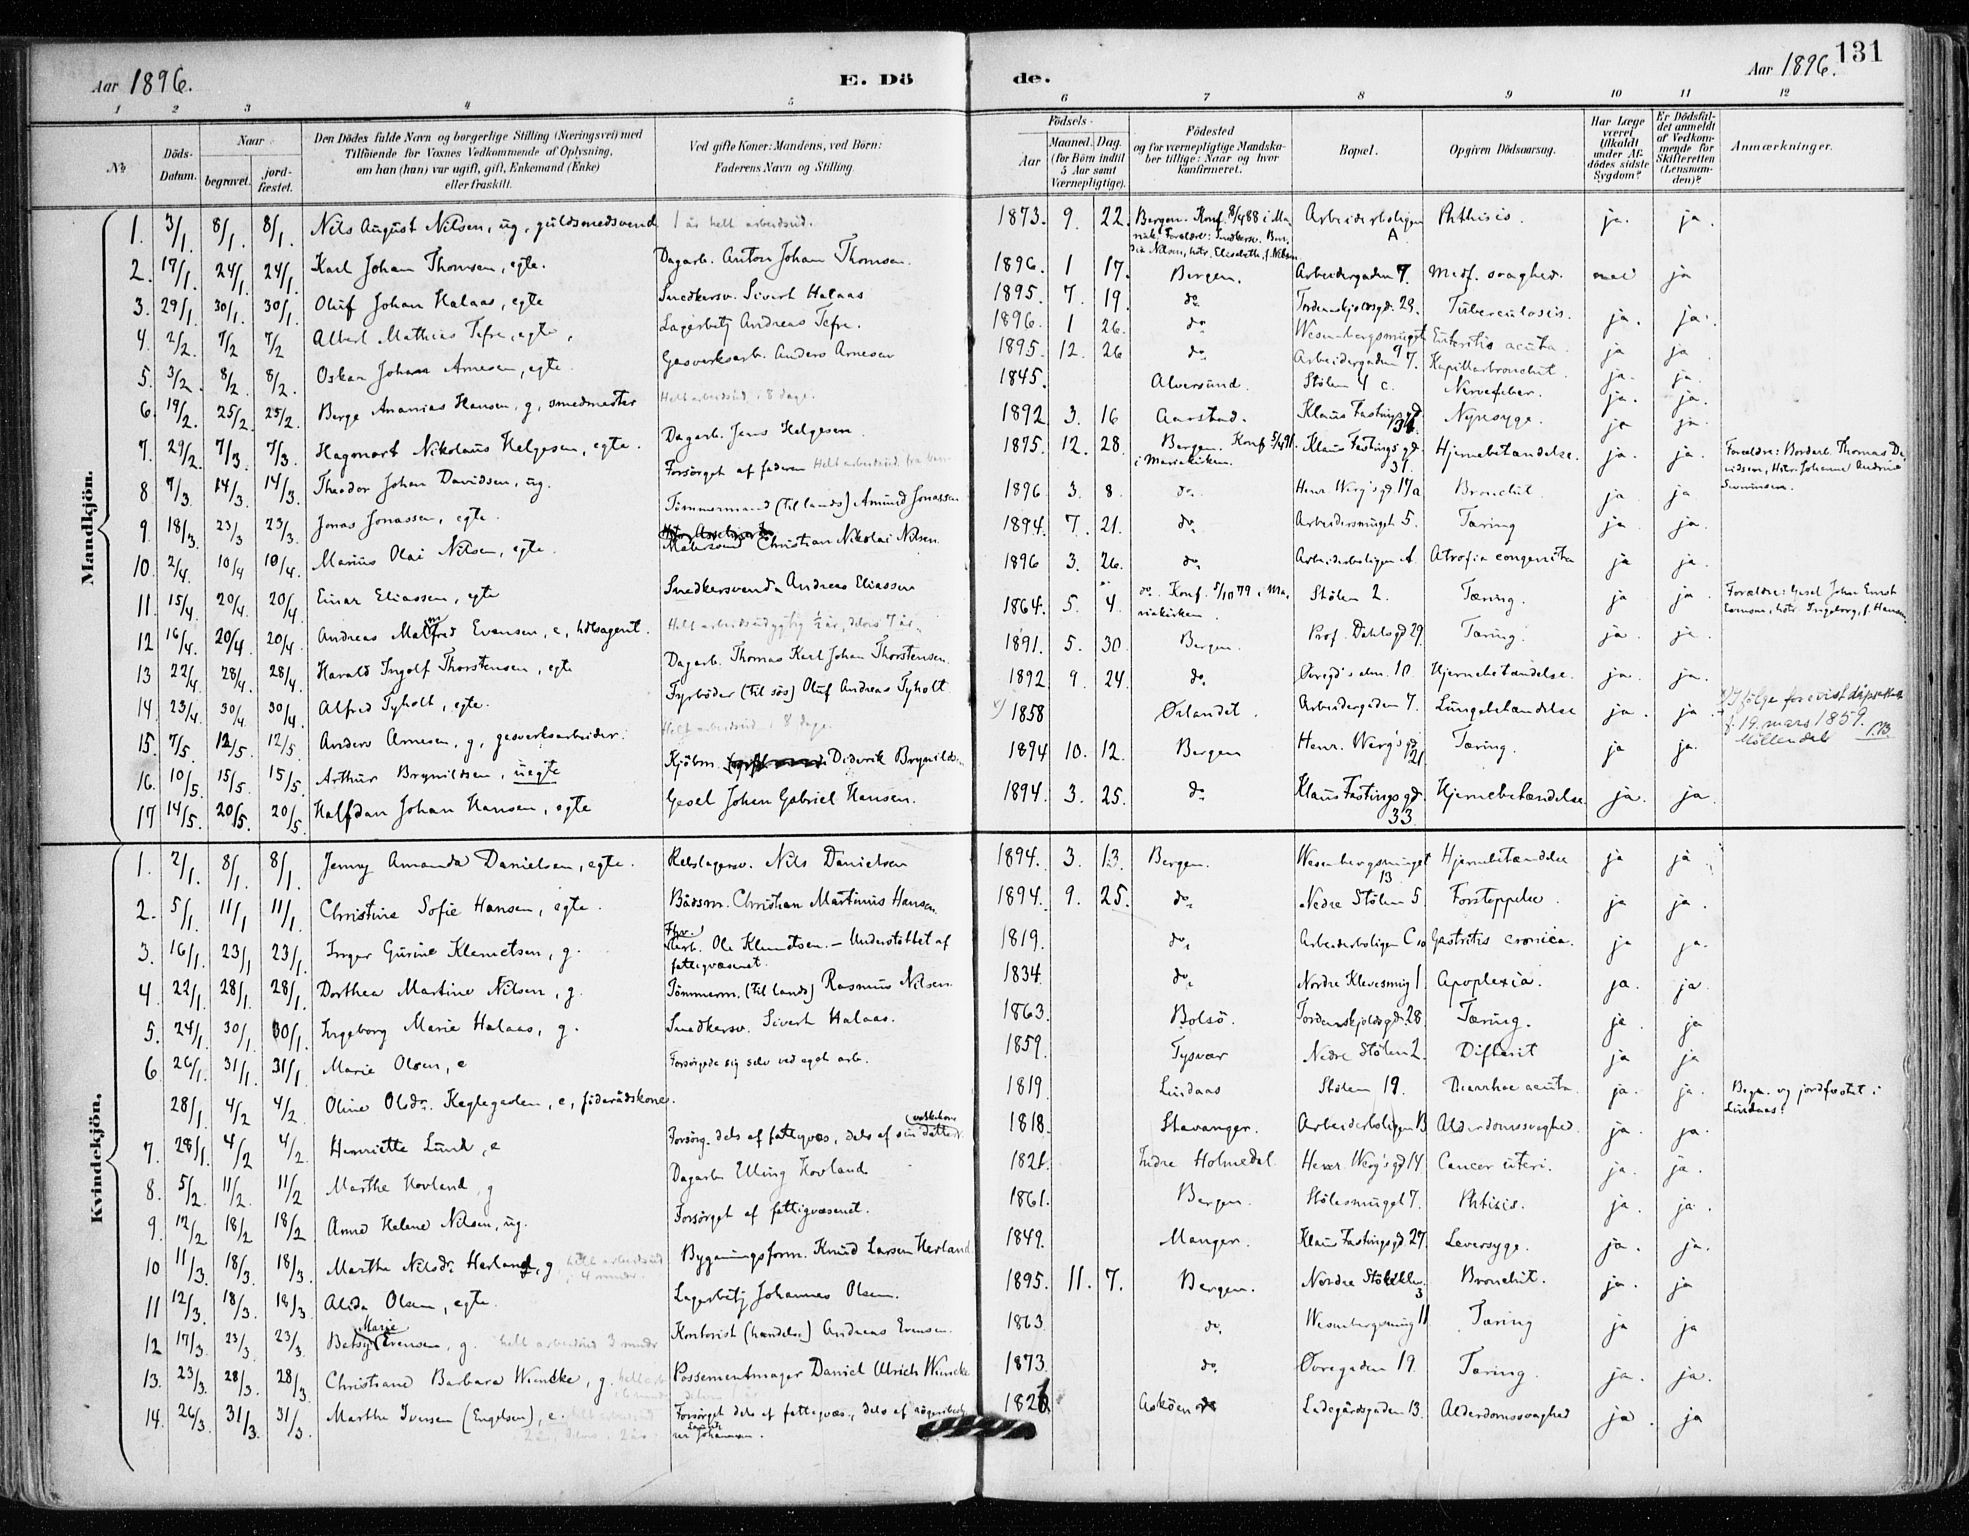 Aar 1896. E. Dö
1 2 3 4 5
№ Döds-Datum. Naar begravet. jordfæstet. Den Dödes fulde Navn og borgerlige Stilling (Næringsvei) med Tilföiende for Voxnes Vedkommende af Oplysning, om han (hun) var ugift, gift, Enkemand (Enke) eller fraskilt. Ved gifte Koner: Mandens, ved Börn: Faderens Navn og Stilling.
Mandkjön.
1. 3/1. 8/1. 8/1. Nils August Nilsen, ug, guldsmedsvend 1 år helt arbeidsud.
2. 17/1. 24/1. 24/1. Karl Johan Thomsen, egte. Dagarb. Anton Johan Thomsen.
3. 29/1. 30/1. 30/1. Oluf Johan Halaas, egte Snedkersv. Sivert Halaas
4. 2/2. 7/2 7/2 Albert Mathias Tefre, egte, Lagerbetj Andreas Tefre.
5. 3/2. 8/2. 8/2. Oskar Johan Arnesen, egte. Gasverksarb. Anders Arnesen
6. 19/2. 25/2. 25/2. Berge Ananias Hansen, g, smedmester Helt arbeidsud. i 8 dage.
7. 29/2. 7/3 7/3. Hagonart Nikolaus Helgesen, egte. Dagarb. Jens Helgesen
8 7/3. 14/3. 14/3. Theodor Johan Davidsen, ug. Forsörget af faderen Helt arbeidsud. fra barn
9 18/3. 23/3 23/3. Jonas Jonassen, egte. Tömmermand (til lands) Amund Jonassen
10. 2/4. 10/4 10/4. Marius Olai Nilsen, egte. Malersvend Christian Nikolai Nilsen.
11. 15/4. 20/4. 20/4 Einar Eliassen, egte Snedkersvend Andreas Eliassen
12 16/4. 20/4. 20/4. Andreas Manfred Evensen, e, hdlsagent. Helt arbeidsudygtig ½ år, delvis 7 år.
13 22/4. 28/4. 28/4. Harald Ingolf Thorstensen, egte Dagarb. Thomas Karl Johan Thorstensen.
14. 23/4 30/4. 30/4. Alfred Tyholt, egte. Fyrböder (til sös) Oluf Andreas Tyholt
15. 7/5. 12/5. 12/5 Anders Arnesen, g, gasverksarbeider. Helt arbeidsud. i 8 dage
16. 10/5. 15/5. 15/5. Arthur Brynildsen, uegte Kjöbm. Diderik Brynilds
17 14/5. 20/5. 20/5. Halfdan Johan Hansen, egte Gesel Johan Gabriel Hansen.
Kvindekjön.
1. 2/1. 8/1. 8/1. Jenny Amanda Danielsen, egte. Rebslagersv. Nils Danielsen
2. 5/1. 11/1 11/1. Christine Sofie Hansen, egte. Bådsm. Christian Martinus Hansen.
3. 16/1. 23/1 23/1. Inger Gurine Klemetsen, g. Fhv. arb. Ole Klemetsen. – Understöttet af
fattigvæsenet.
4. 22/1. 28/1. 28/1. Dorthea Martine Nilsen, g. Tömmerm. (til lands) Rasmus Nilsen.
5. 24/1. 30/1. 30/1. Ingeborg Marie Halaas, g. Snedkersv. Sivert Halaas.
6 26/1. 31/1. 31/1. Marie Olsen, e Forsörgede sig selv ved eget arb.
28/1. 4/2 4/2 Oline Olsdr. Keglegarden, e, föderådskone.
7. 28/1. 4/2 4/2. Henriette Lund, e Forsörg. dels af fattigvæs, dels af sin datter
8. 5/2. 11/2. 11/2 Marthe Hovland, g Dagarb. Elling Hovland
9. 12/2 18/2 18/2 Anne Helene Nilsen, ug. Forsörget af fattigvæsenet.
10 11/3. 18/3. 18/3. Marthe Nilsdr. Herland, g. helt arbeidsud i 4 mndr. Bygningsform. Knud Larsen Herland
11 12/3. 18/3. 18/3. Alida Olsen, egte. Lagerbetj Johannes Olsen.
12 17/3. 23/3 23/3. Betsy Marie Evensen, g. helt arbeidsud 3 mndr Kontorist (handels) Andreas Evensen.
13. 23/3. 28/3. 28/3 Christiane Barbara Wiencke, g. Possementmager Daniel Ulrich Wiencke
14. 26/3. 31/3. 31/3. Marthe Iversen (Engelsen), e. Forsörget dels af fattigvæs., dels af
Johannesen.
de. Aar 1896. 131
6 7 8 9 10 11 12
Födsels- Aar Maaned. Dag. (for Börn indtil 5 Aar samt Værnepligtige). Födested og for værnepligtige Mandskaber tillige: Naar og hvor konfirmeret. Bopæl. Opgiven Dödsaarsag. Har Læge været tilkaldt under Afdödes sidste Sygdom? Er Dödsfaldet anmeldt af Vedkommende for Skifteretten (Lensmanden)? Anmærkninger.
1873. 9. 22. Bergen. Konf. 8/4 88 i Mariak. Forældre: Snedkersv. Nilsen, hstr. Elisabeth, f. Nilsen Arbeiderboligen A Phthisis. ja. ja.
1896. 1 17. Bergen. Arbeidergaden 9. Medf. svaghed. nei ja
1895. 7. 19. do. Tordenskjoldsgd. 28. Tuberculosis. ja. ja.
1896. 1 26. do. Wesenbergsmuget 9 Enteritis acuta. ja ja
1895. 12. 26 do. Arbeidergaden 7. Kapillarbronchit. ja. ja.
1845. Alversund. Stölen 4 c. Nervefeber. ja. ja.
1892 3. 16 Aarstad. Klaus Fastingsgd. 34. Nyresyge. ja ja.
1875. 12. 28 Bergen. Konf 5/4 91 i Mariakirken. Klaus Fastings gd 31. Hjernebetændelse. ja. ja. Forældre: Bordarb. Thomas Davidsen, Hstr. Johanne Andrine
1896 3. 8. do. Henr. Werg's gd 17a Bronchit. ja ja
1894. 7. 21. do. Arbeidersmuget 5. Tæring ja. ja.
1896 3. 26. do. Arbeiderboligen A. Atrofia congenita ja ja.
1864. 5. 4. do. Konf. 5/10 79 i Mariakirken. Stölen 2. Tæring. ja ja. Forældre: Gesel Johan Ernst Evensen, hstr. Ingeborg, f. Hansen
1891. 5. 30 Bergen. Prof. Dahls gd 29. Tæring. ja. ja
1892 9. 24. do. Øvregd's alm. 10 Hjernebetændelse. ja. ja.
x) 1858 Ørlandet. Arbeidergaden 7. Lungebetændelse ja. ja. x) Ifölge forevist dåpsattest f. 19. mars 1859. Möllendal
1894 10. 12. Bergen Henr. Werg's gd. 21. Tæring. ja ja.
1894. 3. 25. do. Klaus Fastings gd. 33. Hjernebetændelse. ja. ja.
1894. 3. 13. Bergen. Wesenbergsmuget 13 Hjernebetændelse ja ja
1894. 9. 25. do. Nedre Stölen 5 Forstoppelse. ja ja.
1819. do. Arbeiderboligen C 10 Gastritis cronica. ja ja.
1834. do. Nordre Klevesmug 1 Apoplexia. ja. ja
1863. Bolsö. Tordenskjoldsgd. 28. Tæring. ja. ja
1859. Tysvær Nedre Stölen 2. Difterit ja ja
1819 Lindaas Stölen 19. Diarrhoe acuta. ja. ja. Begr. og jordfæstet i Lindaas.
1818. Stavanger. Arbeiderboligen B Alderdomssvaghed. ja. ja.
1821. Indre Holmedal. Henr. Werg's gd 14. Cancer uteri. ja. ja.
1861. Bergen. Stölesmuget 7. Phtisis. ja. ja.
1849. Manger. Klaus Fastingsgd 27. Leversyge. ja. ja.
1895. 11. 7. Bergen. Nordre 3 Bronchit. ja. ja
1863. do. Wesenbergsmug 11 Tæring ja ja
1873. do. Øvregaden 19. Tæring. ja. ja.
1826 Asköen Ladegårdsgaden 13. Alderdomssvaghed ja. ja